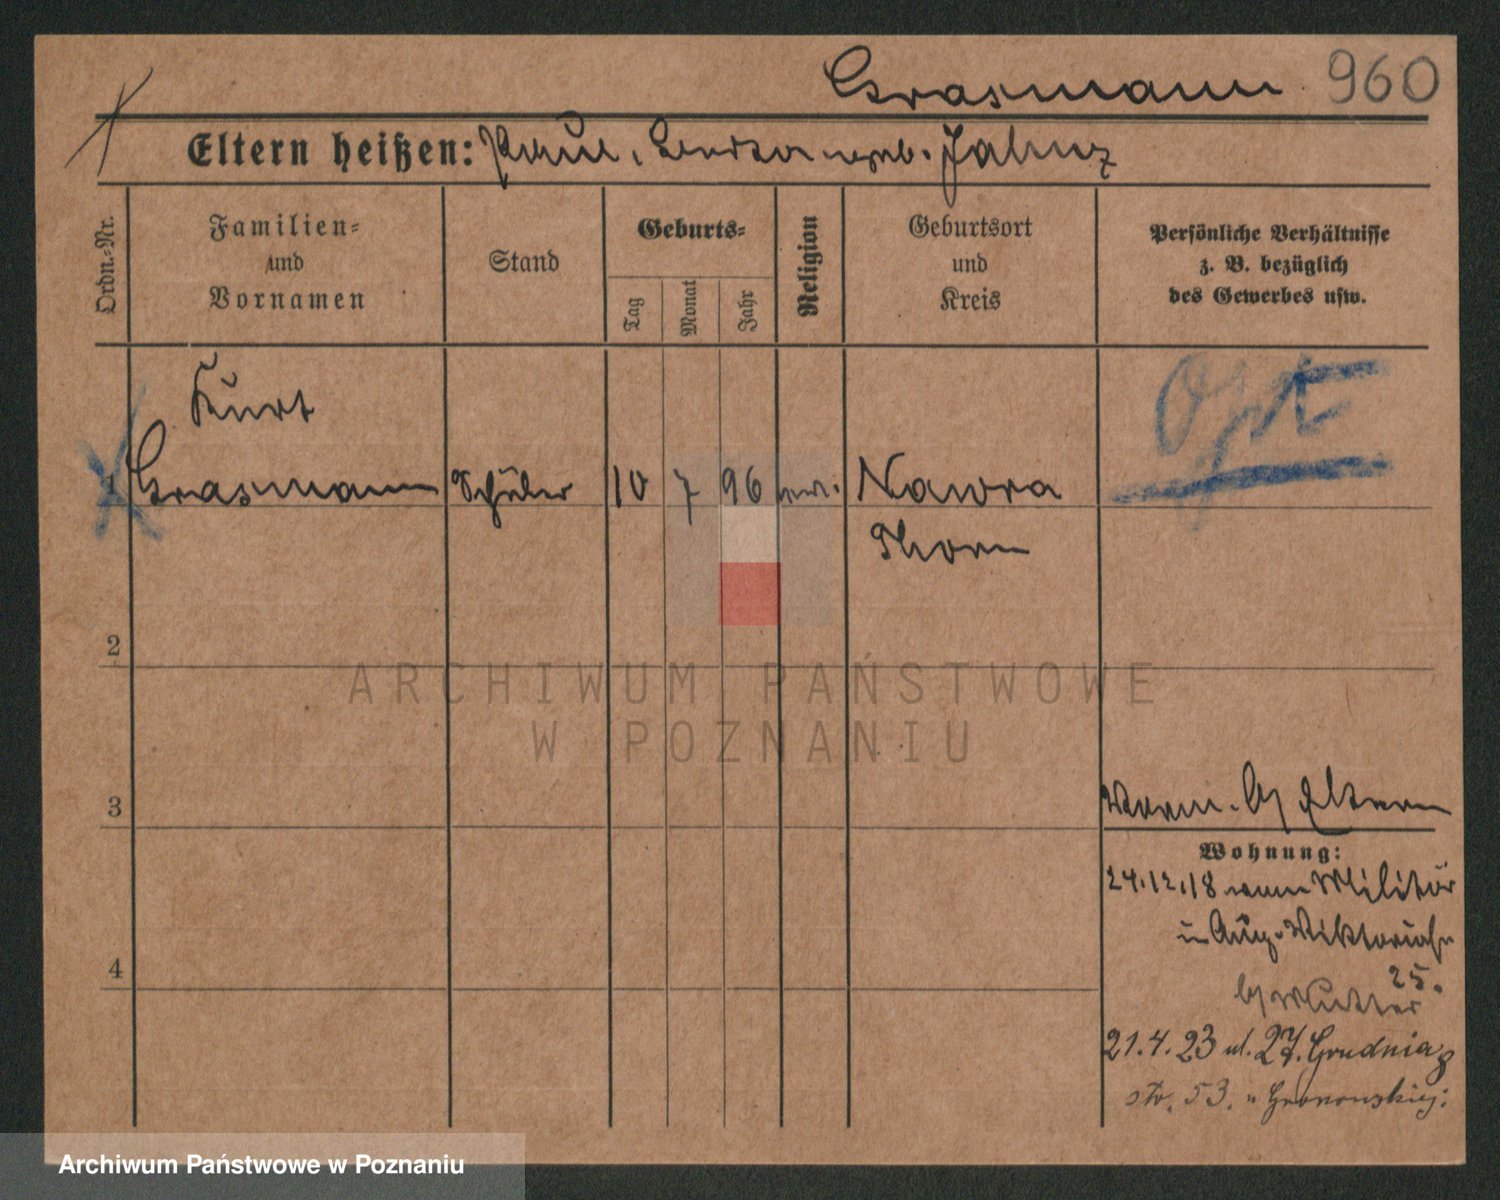 Grasmann 960
Eltern heißen: Paul, geb. Jahnz
Ordn.-Nr.
Familien-
und
Vornamen
Stand
Geburts-
Tag
Monat
Jahr
Religion
Geburtsort
und
Kreis
Persönliche Verhältnisse
z. B. bezüglich
des Gewerbes usw.
Kurt
1 Grasmann Schüler 10 7 96 Nawra
Thorn
Opt
2
3
4
b/ Eltern
Wohnung:
24.12.18 vom Militär
Aug. Viktoriastr
25.
b/ Mutter
21.4.23 ul. 27. Grudnia 8
53. u Gronowskiej.
ARCHIWUM PAŃSTWOWE
W POZNANIU
Archiwum Państwowe w Poznaniu